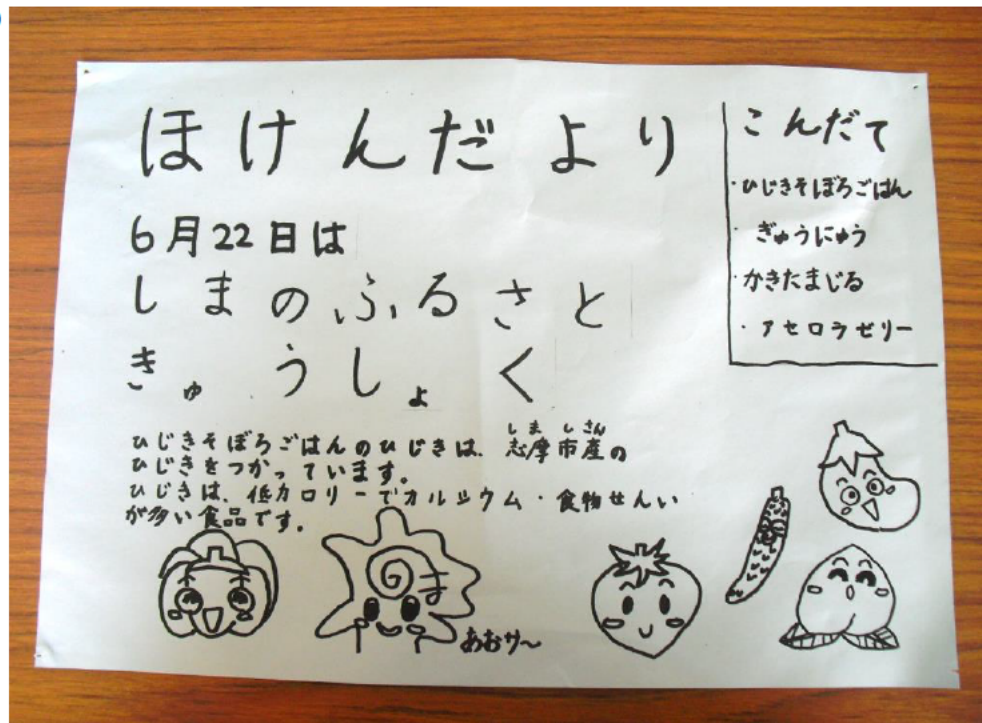 ほけんだより
6月22日は
しまのふるさと
きゅうしょく
ひじきそぼろごはんのひじきは、志摩市産の
しましさん
ひじきをつかっています。
ひじきは、低カロリーでオルシウム・食物せんい
が多い食品です。
こんだて
・ひじきそぼろごはん
ぎゅうにゅう
・かきたまじる
・アセロラゼリー
ま
あおサ〜